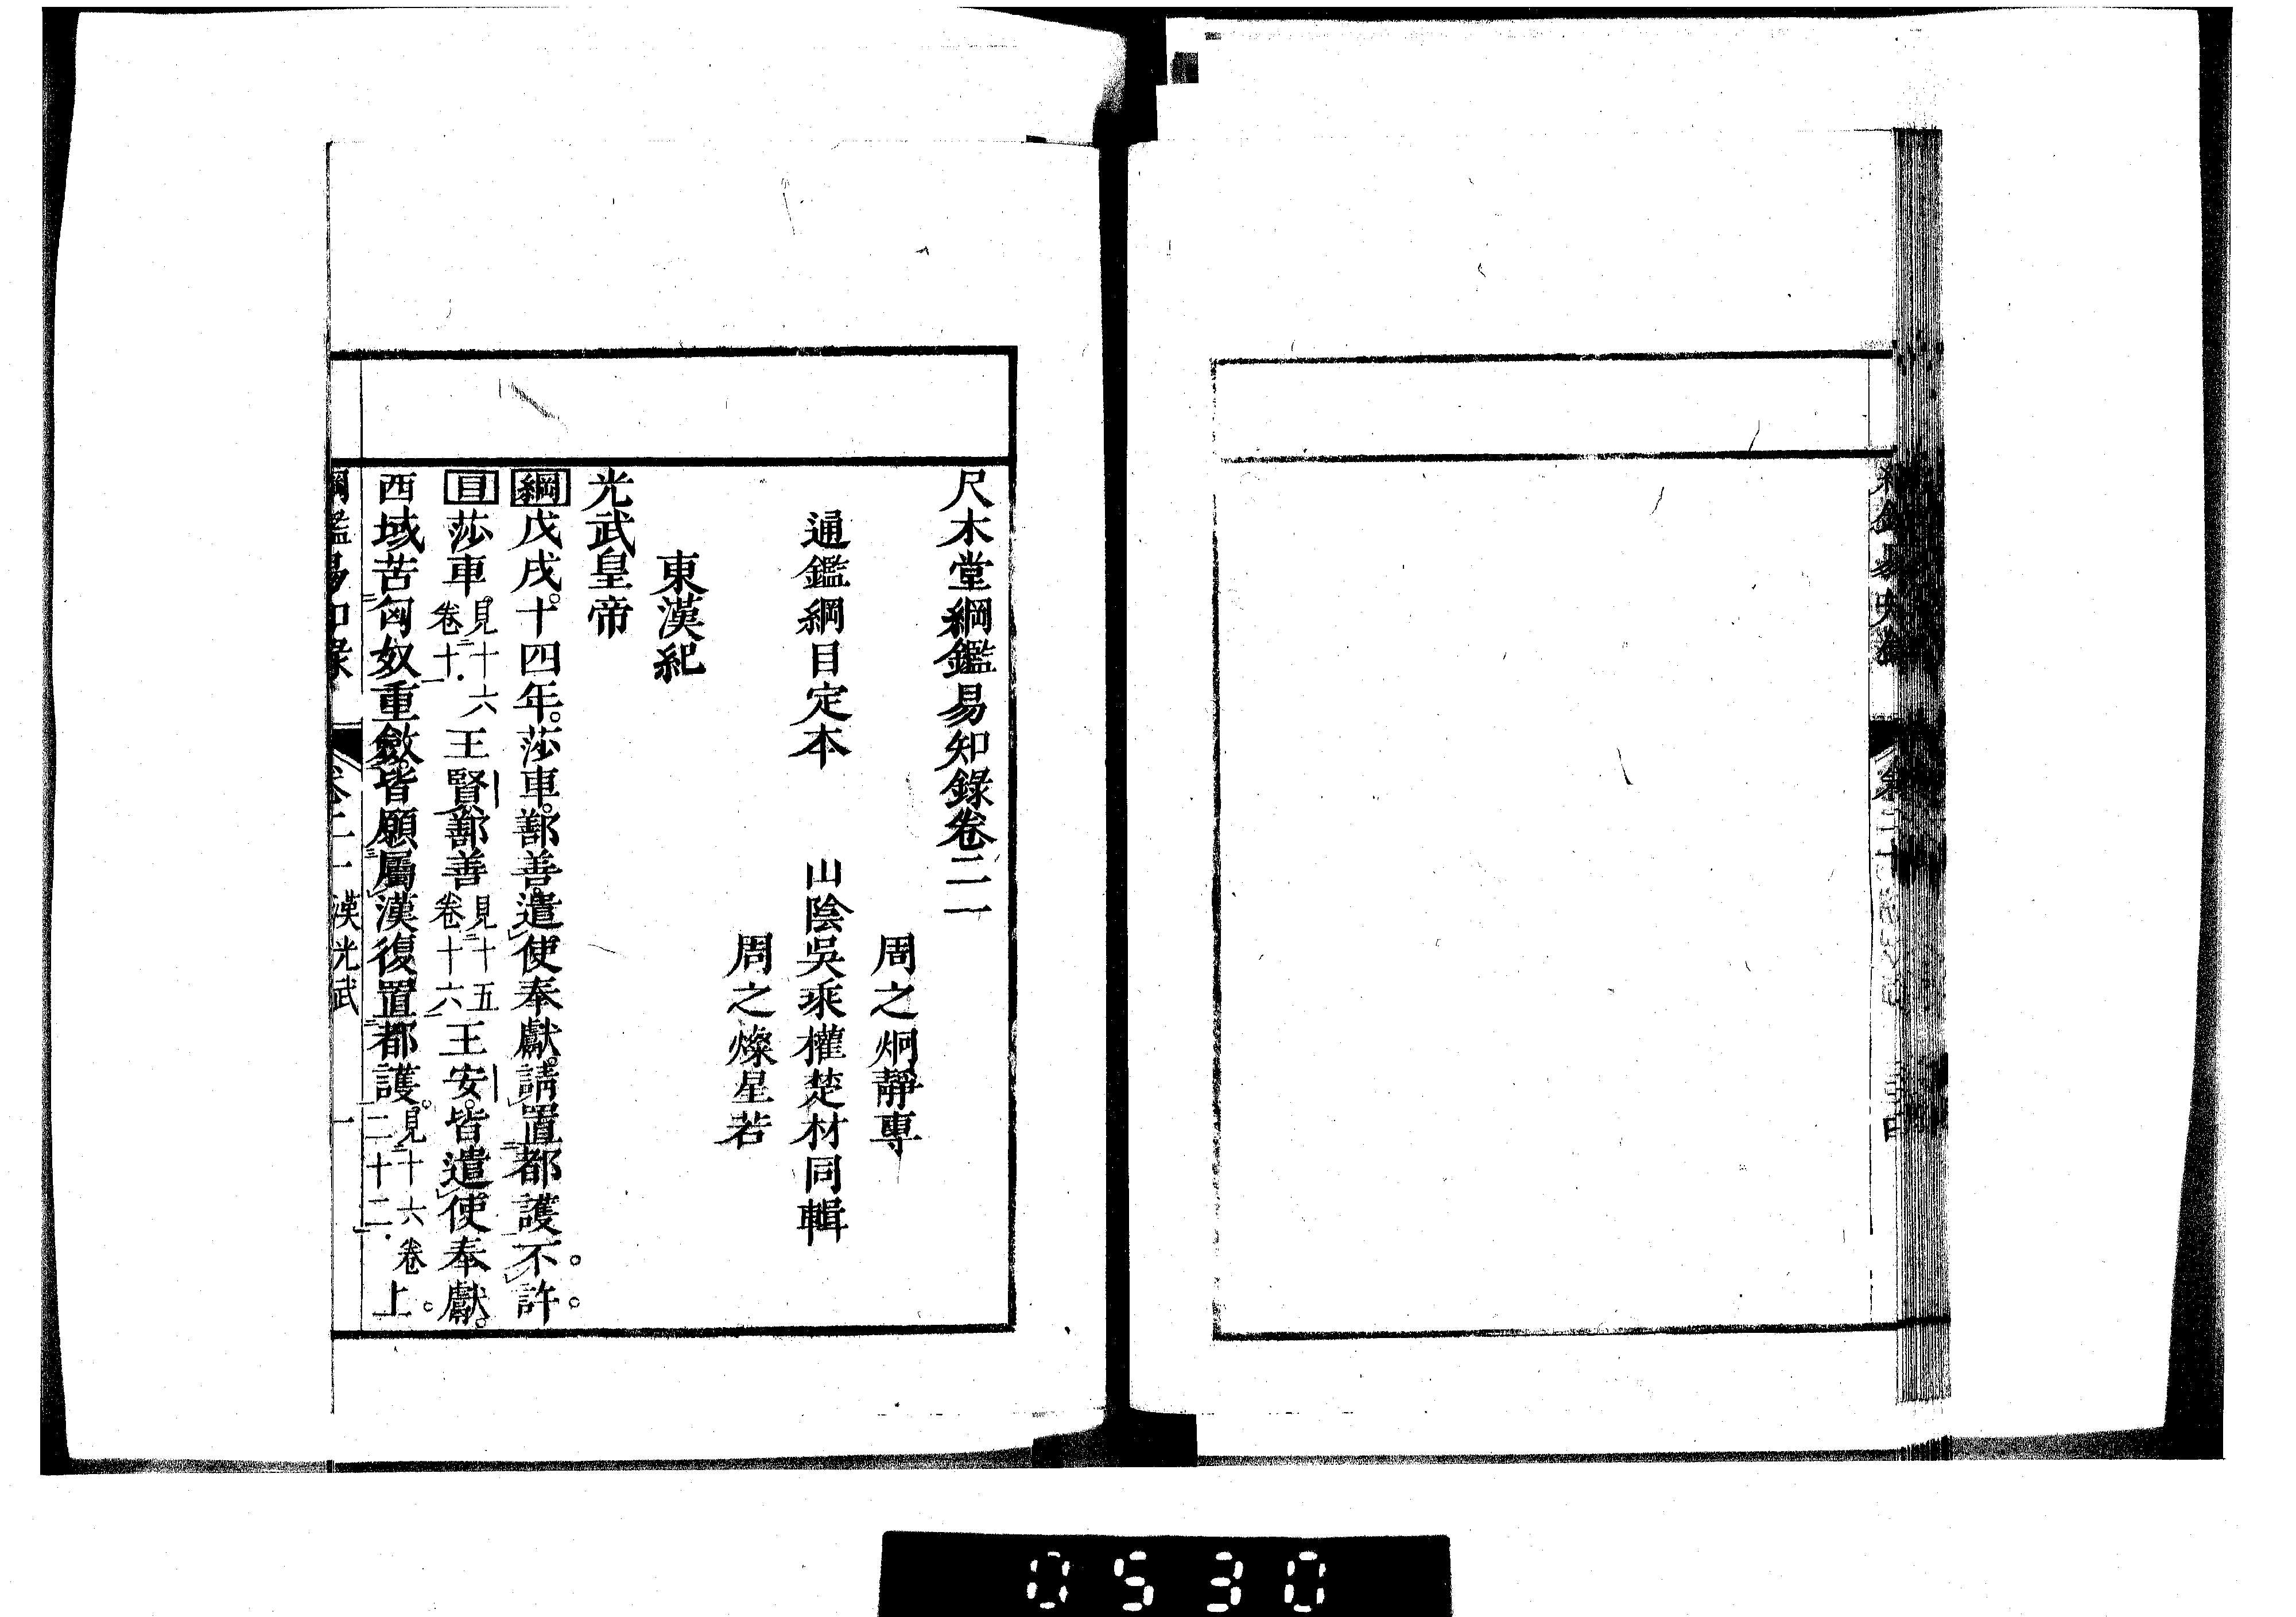 尺木堂綱鑑易知錄卷二一
周之炯靜專
通鑑綱目定本　山陰吳乘權楚材同輯
周之燦星若
東漢紀
光武皇帝
綱戊戌。十四年。莎車。鄯善。遣使奉獻。請置都護。不許。
目莎車。見十六卷十一王賢。鄯善見十五卷十六王安。皆遣使奉獻。
西域苦匈奴重斂。皆願屬漢。復置都護。見十六卷二十二上。
綱鑑易知錄　卷二一　漢光武　一
0530